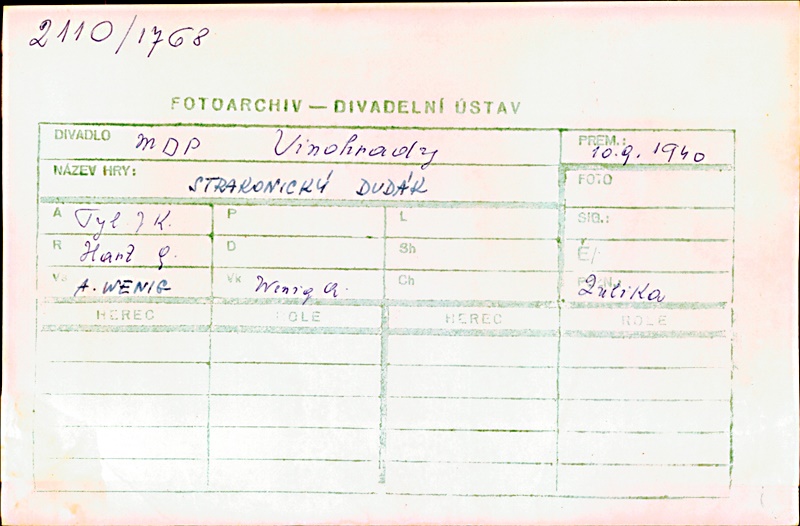 2110/1768
FOTOARCHIV — DIVADELNÍ ÚSTAV
DIVADLO MDP Vinohrady PREM.: 10.9. 1940
NÁZEV HRY: STRAKONICKÝ DUDÁK FOTO
A Tyl J K. P L SIG.:
R Hart J. D Sh Č/.
A. WENIG Vk Wenig A. Ch
HEREC ROLE HEREC ROLE